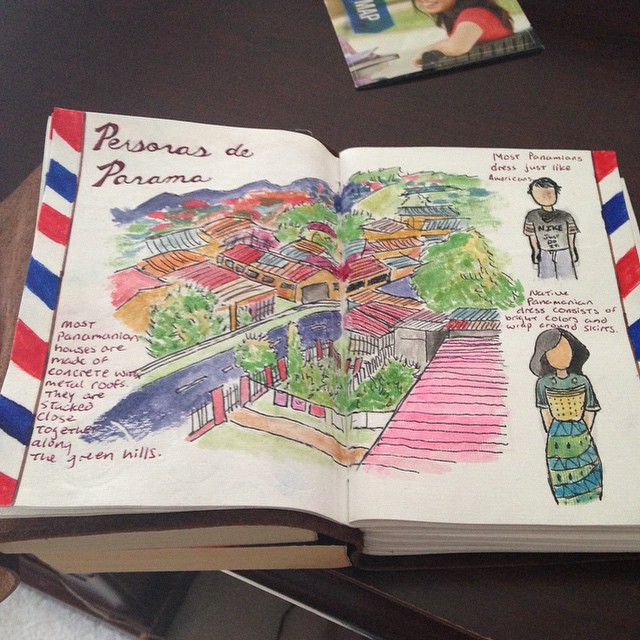 MAP
Personas de
Panama
Most Panamians
dress just like
Americans
NIKE
Just
Do
It
Native
Panamanian
dress consists of
bright colors and
wrap around skirts.
Most
Panamanian
houses are
made of
concrete with
metal roofs.
They are
stacked
close
together
along
the green hills.